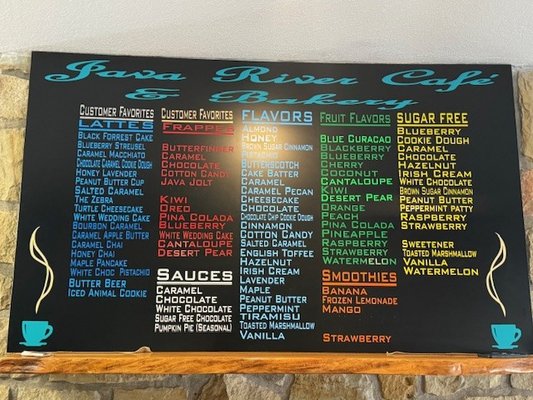 Java River Café
& Bakery
Customer Favorites
Lattes
Black Forrest Cake
Blueberry Streusel
Caramel Macchiato
Chocolate Caramel Cookie Dough
Honey Lavender
Peanut Butter Cup
Salted Caramel
The Zebra
Turtle Cheesecake
White Wedding Cake
Bourbon Caramel
Caramel Apple Butter
Caramel Chai
Honey Chai
Maple Pancake
White Choc Pistachio
Butter Beer
Iced Animal Cookie
Customer Favorites
Frappes
Butterfinger
Caramel
Chocolate
Cotton Candy
Java Jolt
Kiwi
Oreo
Pina Colada
Blueberry
White Wedding Cake
Cantaloupe
Desert Pear
Sauces
Caramel
Chocolate
White Chocolate
Sugar Free Chocolate
Pumpkin Pie (Seasonal)
Flavors
Almond
Honey
Brown Sugar Cinnamon
Pistachio
Butterscotch
Cake Batter
Caramel
Caramel Pecan
Cheesecake
Chocolate
Chocolate Chip Cookie Dough
Cinnamon
Cotton Candy
Salted Caramel
English Toffee
Hazelnut
Irish Cream
Lavender
Maple
Peanut Butter
Peppermint
Tiramisu
Toasted Marshmallow
Vanilla
Fruit Flavors
Blue Curacao
Blackberry
Blueberry
Cherry
Coconut
Cantaloupe
Kiwi
Desert Pear
Orange
Peach
Pina Colada
Pineapple
Raspberry
Strawberry
Watermelon
Smoothies
Banana
Frozen Lemonade
Mango
Strawberry
Sugar Free
Blueberry
Cookie Dough
Caramel
Chocolate
Hazelnut
Irish Cream
White Chocolate
Brown Sugar Cinnamon
Peanut Butter
Peppermint Patty
Raspberry
Strawberry
Sweetener
Toasted Marshmallow
Vanilla
Watermelon